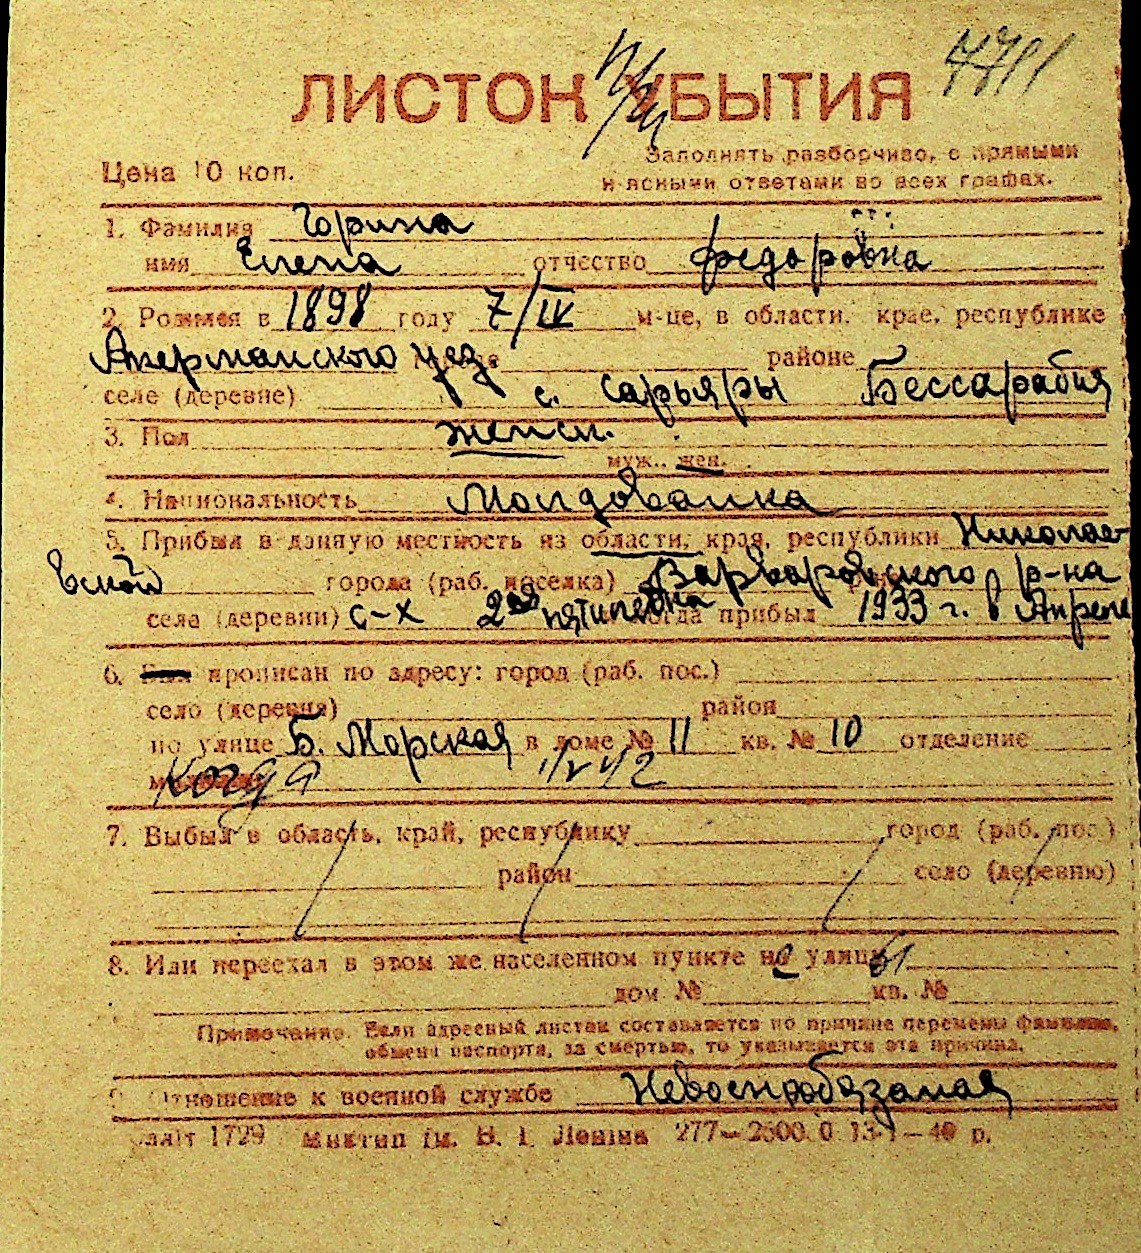 ЛИСТОК УБЫТИЯ
Цена 10 коп.
Заполнять разборчиво, с прямыми
и ясными ответами во всех графах.
1. Фамилия Горина
имя Елена отчество Федоровна
2. Родился в 1898 году 7/IV м-це, в области, крае, республике
Акерманского уез. районе
селе (деревне) с. Сарьяры Бессарабия
3. Пол женск.
муж., жен.
4. Национальность Молдованка
5. Прибыл в данную местность из области, края, республики Николае-
вской города (раб. поселка) Варваровского р-на
села (деревни) с-х 2ая пятилетка когда прибыл 1933 г. в Апреле
6. прописан по адресу: город (раб. пос.)
село (деревня) район
по улице Б. Морская в доме № 11 кв. № 10 отделение
Когда
7. Выбыл в область, край, республику город (раб. пос.)
район село (деревню)
8. Или переехал в этом же населенном пункте улицы
дом № кв. №
Примечание. Если адресный листок составляется по причине перемены фамилии,
обмена паспорта, за смертью, то указывается эта причина.
9. Отношение к военной службе Невоеннобязаная
1729 Миктип ім. В. І. Леніна 277—2600.0 13-I—40 р.